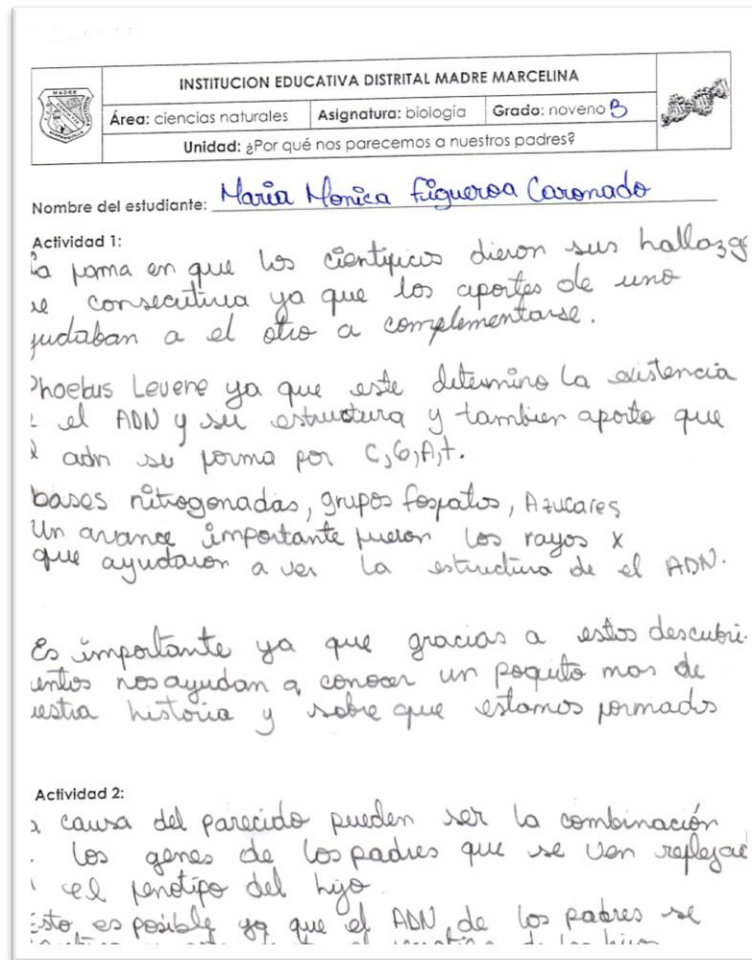 INSTITUCION EDUCATIVA DISTRITAL MADRE MARCELINA
Área: ciencias naturales Asignatura: biología Grado: noveno B
Unidad: ¿Por qué nos parecemos a nuestros padres?
Nombre del estudiante: Maria Monica Figueroa Caronado
Actividad 1:
a forma en que los científicos dieron sus hallazg
se consecutiva ya que los aportes de uno
yudaban a el otro a complementarse.
Phoebus Levene ya que este determino la existencia
el ADN y su estructura y tambien aporto que
l adn se forma por C,G,A,t.
bases nitrogonadas, grupos fosfatos, Azucares
Un avance importante fueron los rayos x
que ayudaron a ver la estructura de el ADN.
Es importante ya que gracias a estos descubri
entos nos ayudan a conocer un poquito mas de
uestra historia y sobre que estamos formados
Actividad 2:
a causa del parecido pueden ser la combinación
los genes de los padres que se ven reflejad
el fenotipo del hijo.
Esto, es posible ya que el ADN de los padres se